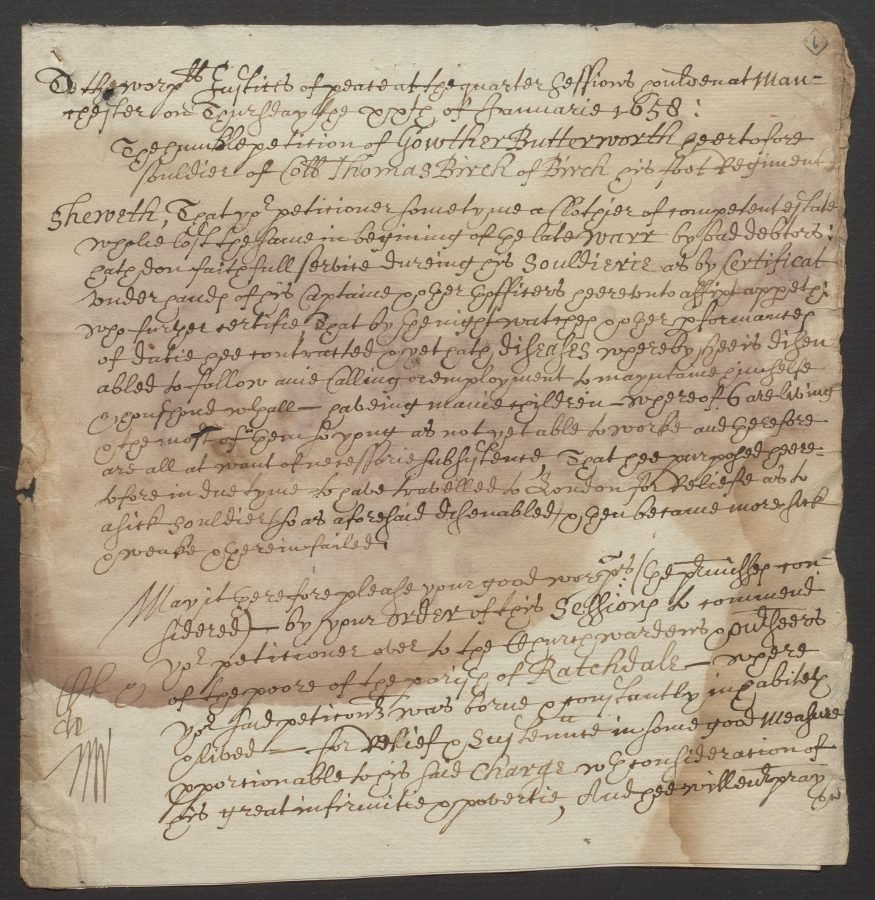 To the worpll Justices of peace at the quarter Sessions houlden at Man-
chester on Thursday the xxth of Januarie 1658:
The humble petition of Gowther Butterworth heertofore
souldier of Coll Thomas Birch of Birch his foot Regiment
Sheweth, That yor peticioner sometyme a Clothier of competent estate
who lost the same in begining of the late warr by bad debtors:
hath don faithfull service dureing his Souldierie as by Certificat
under hand of his Captaine & other Officers heereunto affixt appeth:
who further certifie, That by the night watches & other pformances
of dutie hee contracted & yet hath diseases whereby hee is disen-
abled to follow anie Calling or employment to mayntaine himselfe
& houshond whall haveing manie children whereof 6 are living
& the most of them so yong as not yet able to worke and therefore
are all at want of necessarie subsistence, That hee purposed heere-
tofore in due tyme to have travelled to London for Reliefe as to
a sick souldier (so as aforesaid disenabled) & then became more sick
& weake & therein failed.
May it therefore please your good worpps (the pmisses con-
sidered) by your order of this Sessions to commend
yor peticioner over to the Churchwardens & Ouerseers
of the poore of the parish of Ratchdale where
yor said peticonr was borne & constantly inhabiteth
& lived for relief & sustenance in some good measure
pportionable to his said Charge wth consideration of
his great infirmitie & povertie, And hee will eur pray
&c